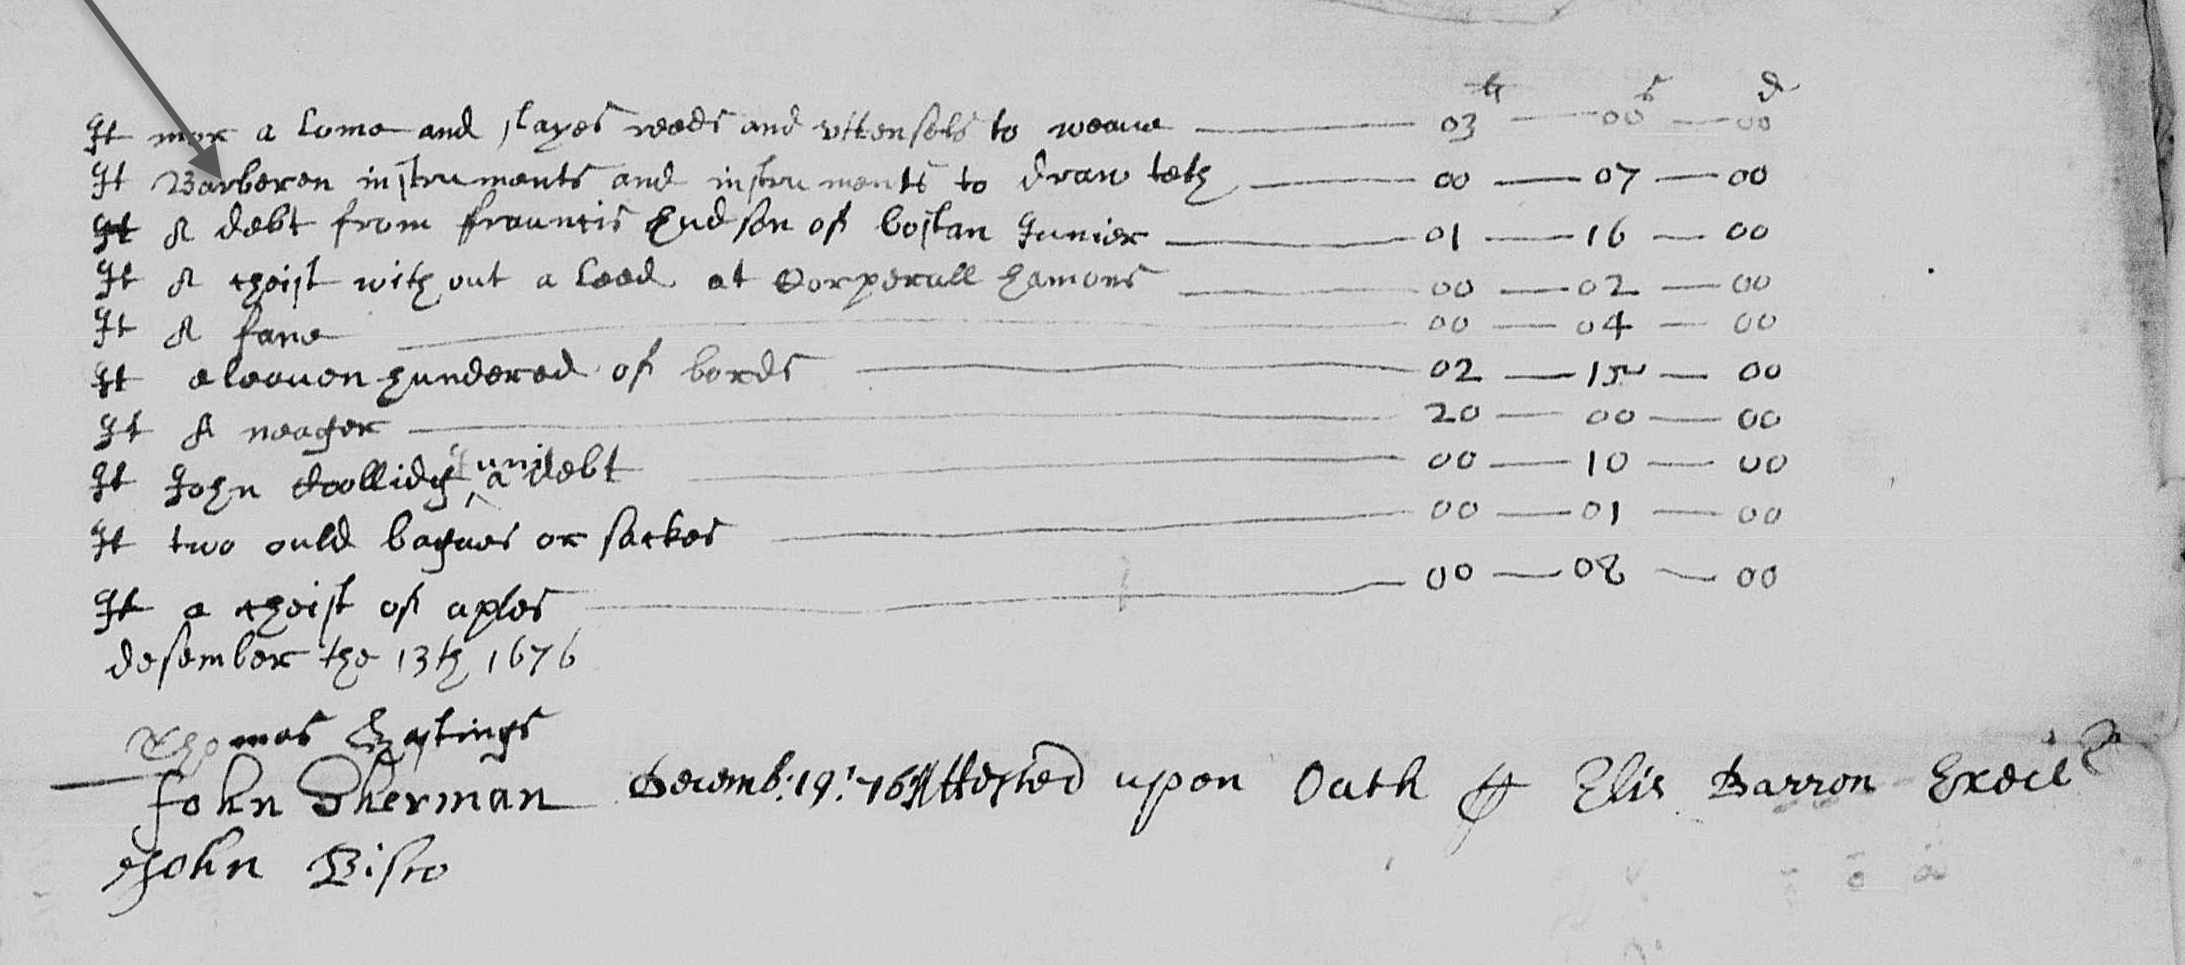 li s d
It mor a lome and slayes reeds and uttensels to weave 03 — 00 — 00
It Barberen instruments and instruments to draw teth 00 — 07 — 00
It A debt from frauncis Hudson of bostan Junier 01 — 16 — 00
It A cheist with out a leed at Corperall hamons 00 — 02 — 00
It A fane 00 — 04 — 00
It aleauen hundered of bords 02 — 15 — 00
It A neager 20 — 00 — 00
It John Coollidg Juni a debt 00 — 10 — 00
It two ould bagues or sackes 00 — 01 — 00
It a cheist of aples 00 — 08 — 00
desember the 13th 1676
Thomas Hastings
John Sherman Decemb: 19: 76 Attested upon Oath Elis Barron
John Bisco